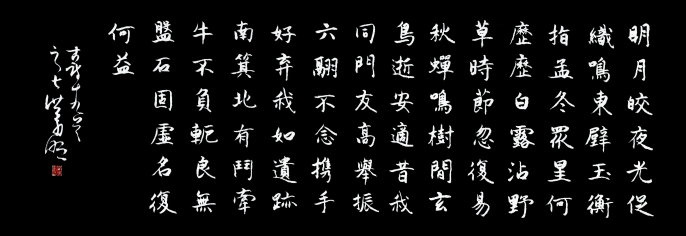 明月皎夜光促
織鳴東壁玉衡
指孟冬眾星何
歷歷白露沾野
草時節忽復易
秋蟬鳴樹間玄
鳥逝安適昔我
同門友高舉振
六翮不念携手
好弃我如遺跡
南箕北有鬥牽
牛不負軛良無
盤石固虛名復
何益